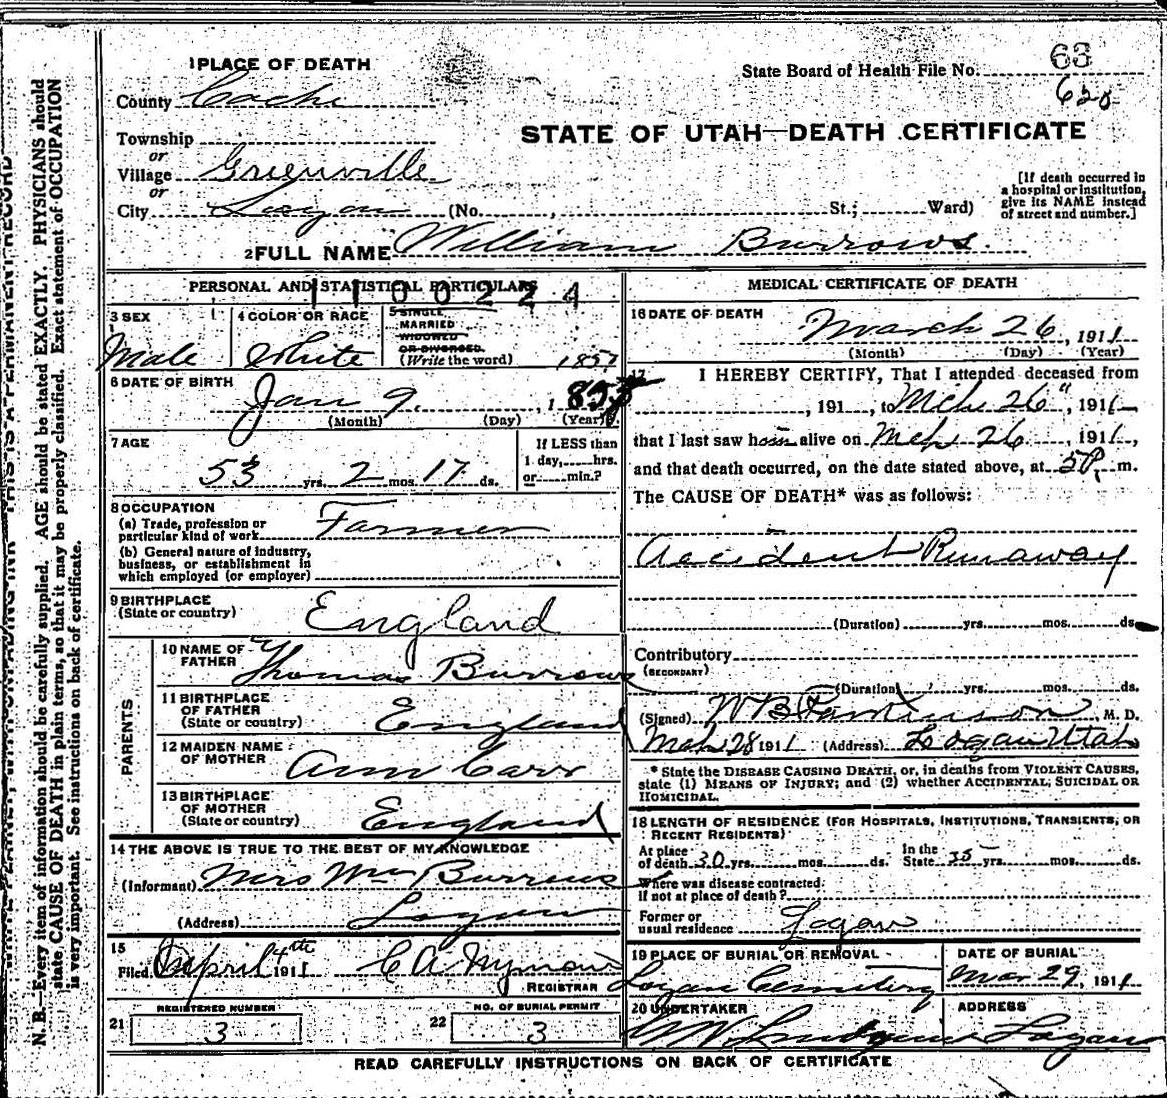 63
State Board of Health File No.
620
1 PLACE OF DEATH
County Cache
STATE OF UTAH—DEATH CERTIFICATE
Township
or
Village Greenville
or
City Logan (No. , St.; Ward)
[If death occurred in a hospital or institution, give its NAME instead of street and number.]
2 FULL NAME William Burrows.
PERSONAL AND STATISTICAL PARTICULARS
1100224
3 SEX
Male
4 COLOR OR RACE
White
5 SINGLE,
MARRIED
WIDOWED
OR DIVORCED.
(Write the word)
1857
6 DATE OF BIRTH
Jan 9. , 1
(Month) (Day) (Year)
7 AGE
53 yrs. 2 mos. 17 ds.
If LESS than
1 day, hrs.
or min.?
8 OCCUPATION
(a) Trade, profession or
particular kind of work Farmer
(b) General nature of industry,
business, or establishment in
which employed (or employer)
9 BIRTHPLACE
(State or country) England
PARENTS
10 NAME OF
FATHER Thomas Burrows
11 BIRTHPLACE
OF FATHER
(State or country) England
12 MAIDEN NAME
OF MOTHER Ann Carr
13 BIRTHPLACE
OF MOTHER
(State or country) England
14 THE ABOVE IS TRUE TO THE BEST OF MY KNOWLEDGE
(Informant) Mrs Wm Burrows
(Address) Logan
15
Filed April 4th 1911 C A Nyman
REGISTRAR
21 REGISTERED NUMBER
3
22 NO. OF BURIAL PERMIT
3
MEDICAL CERTIFICATE OF DEATH
16 DATE OF DEATH
March 26, 1911
(Month) (Day) (Year)
17 I HEREBY CERTIFY, That I attended deceased from
, 191 , to Mch 26", 1911,
that I last saw him alive on Mch 26, 1911,
and that death occurred, on the date stated above, at 5 P. m.
The CAUSE OF DEATH* was as follows:
Accident Runaway
(Duration) yrs. mos. ds.
Contributory
(SECONDARY)
(Duration) yrs. mos. ds.
(Signed) W B Parkinson, M. D.
Mch 28 1911 (Address) Logan Utah
* State the DISEASE CAUSING DEATH, or, in deaths from VIOLENT CAUSES,
state (1) MEANS OF INJURY; and (2) whether ACCIDENTAL, SUICIDAL OR
HOMICIDAL.
18 LENGTH OF RESIDENCE (FOR HOSPITALS, INSTITUTIONS, TRANSIENTS, OR
RECENT RESIDENTS)
At place
of death 30 yrs. mos. ds.
In the
State 35 yrs. mos. ds.
Where was disease contracted
if not at place of death?
Former or
usual residence Logan
19 PLACE OF BURIAL OR REMOVAL
Logan Cemetery
DATE OF BURIAL
Mar 29, 1911
20 UNDERTAKER
ADDRESS
Logan
READ CAREFULLY INSTRUCTIONS ON BACK OF CERTIFICATE
N. B.—Every item of information should be carefully supplied. AGE should be stated EXACTLY. PHYSICIANS should
state CAUSE OF DEATH in plain terms, so that it may be properly classified. Exact statement of OCCUPATION
is very important. See instructions on back of certificate.